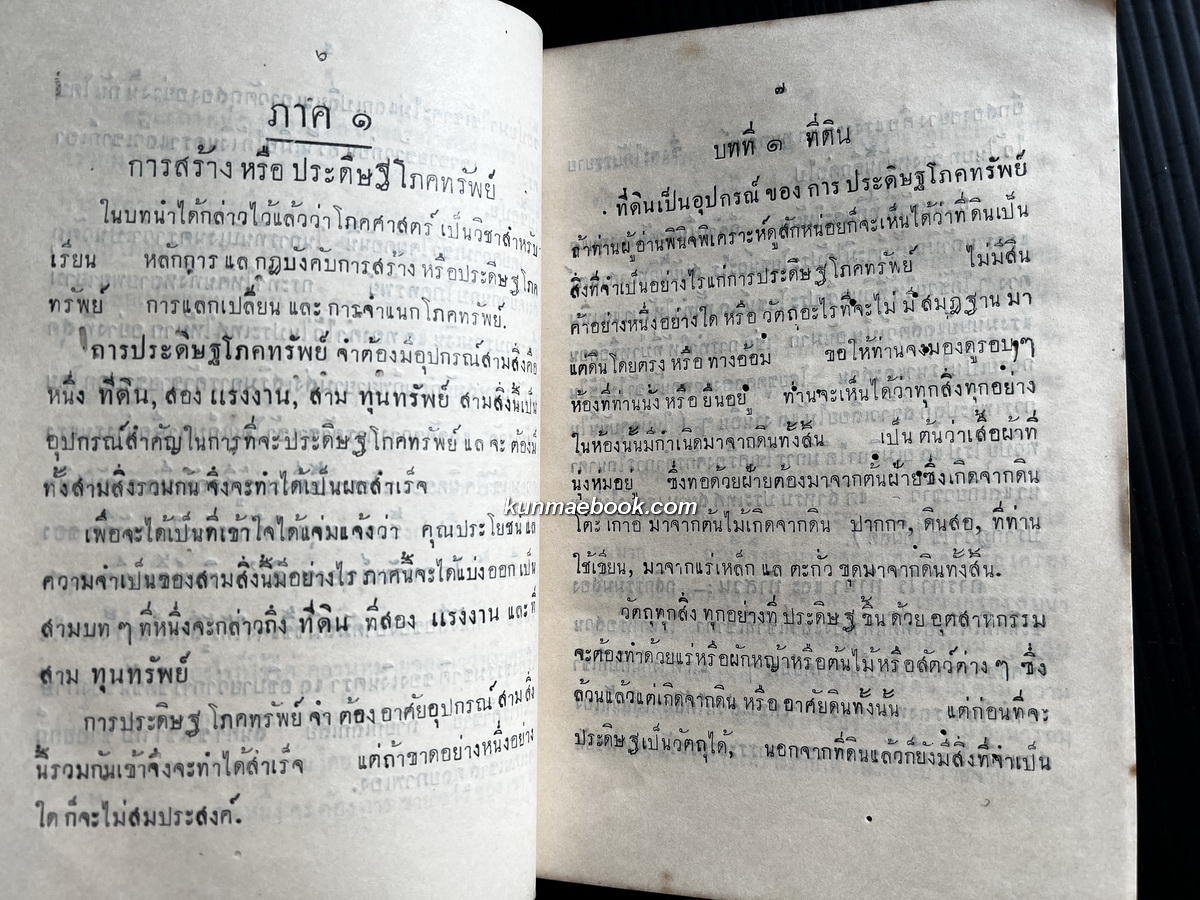 ๖
ภาค ๑
การสร้าง หรือ ประดิษฐโภคทรัพย์
ในบทนำได้กล่าวไว้แล้วว่าโภคศาสตร์ เป็นวิชาสำหรับ
เรียน หลักการ แล กฎบังคับการสร้าง หรือประดิษฐโภค
ทรัพย์ การแลกเปลี่ยน และ การจำแนกโภคทรัพย์.
การประดิษฐโภคทรัพย์ จำต้องมีอุปกรณ์สามสิ่งคือ
หนึ่ง ที่ดิน, สอง แรงงาน, สาม ทุนทรัพย์ สามสิ่งนี้เป็น
อุปกรณ์สำคัญในการที่จะประดิษฐโภคทรัพย์ แล จะ ต้องมี
ทั้งสามสิ่งรวมกัน จึงจะทำได้เป็นผลสำเร็จ
เพื่อจะได้เป็นที่เข้าใจได้แจ่มแจ้งว่า คุณประโยชน์ แล
ความจำเป็นของสามสิ่งนี้มีอย่างไร ภาคนี้จะได้แบ่งออก เป็น
สามบท ๆ ที่หนึ่งจะกล่าวถึง ที่ดิน ที่สอง แรงงาน และ ที่
สาม ทุนทรัพย์
การประดิษฐ โภคทรัพย์ จำ ต้อง อาศัยอุปกรณ์ สามสิ่ง
นี้รวมกันเข้าจึงจะทำได้สำเร็จ แต่ถ้าขาดอย่างหนึ่งอย่าง
ใด ก็จะไม่สมประสงค์.
๗
บทที่ ๑ ที่ดิน
ที่ดินเป็นอุปกรณ์ ของ การ ประดิษฐโภคทรัพย์
ถ้าท่านผู้อ่านพินิจพิเคราะห์ดูสักหน่อยก็จะเห็นได้ว่าที่ดินเป็น
สิ่งที่จำเป็นอย่างไรแก่การประดิษฐโภคทรัพย์ ไม่มีสิน
ค้าอย่างหนึ่งอย่างใด หรือ วัตถุอะไรที่จะไม่ มี สมุฏฐาน มา
แต่ดินโดยตรง หรือ ทางอ้อม ขอให้ท่านจงมองดูรอบๆ
ห้องที่ท่านนั่ง หรือ ยืนอยู่ ท่านจะเห็นได้ว่าทุกสิ่งทุกอย่าง
ในห้องนั้นมีกำเนิดมาจากดินทั้งสิ้น เป็น ต้นว่าเสื้อผ้าที่
นุ่งห่มอยู่ ซึ่งทอด้วยฝ้ายต้องมาจากต้นฝ้ายซึ่งเกิดจากดิน
โต๊ะ เก้าอี้ มาจากต้นไม้เกิดจากดิน ปากกา, ดินสอ, ที่ท่าน
ใช้เขียน, มาจากแร่เหล็ก แล ตะกั่ว ขุดมาจากดินทั้งสิ้น.
วัตถุทุกสิ่ง ทุกอย่างที่ ประดิษฐ ขึ้น ด้วย อุตสาหกรรม
จะต้องทำด้วยแร่หรือผักหญ้าหรือต้นไม้หรือสัตว์ต่าง ๆ ซึ่ง
ล้วนแล้วแต่เกิดจากดิน หรือ อาศัยดินทั้งนั้น แต่ก่อนที่จะ
ประดิษฐเป็นวัตถุได้, นอกจากที่ดินแล้วก็ยังมีสิ่งที่จำเป็น
kunmaebook.com